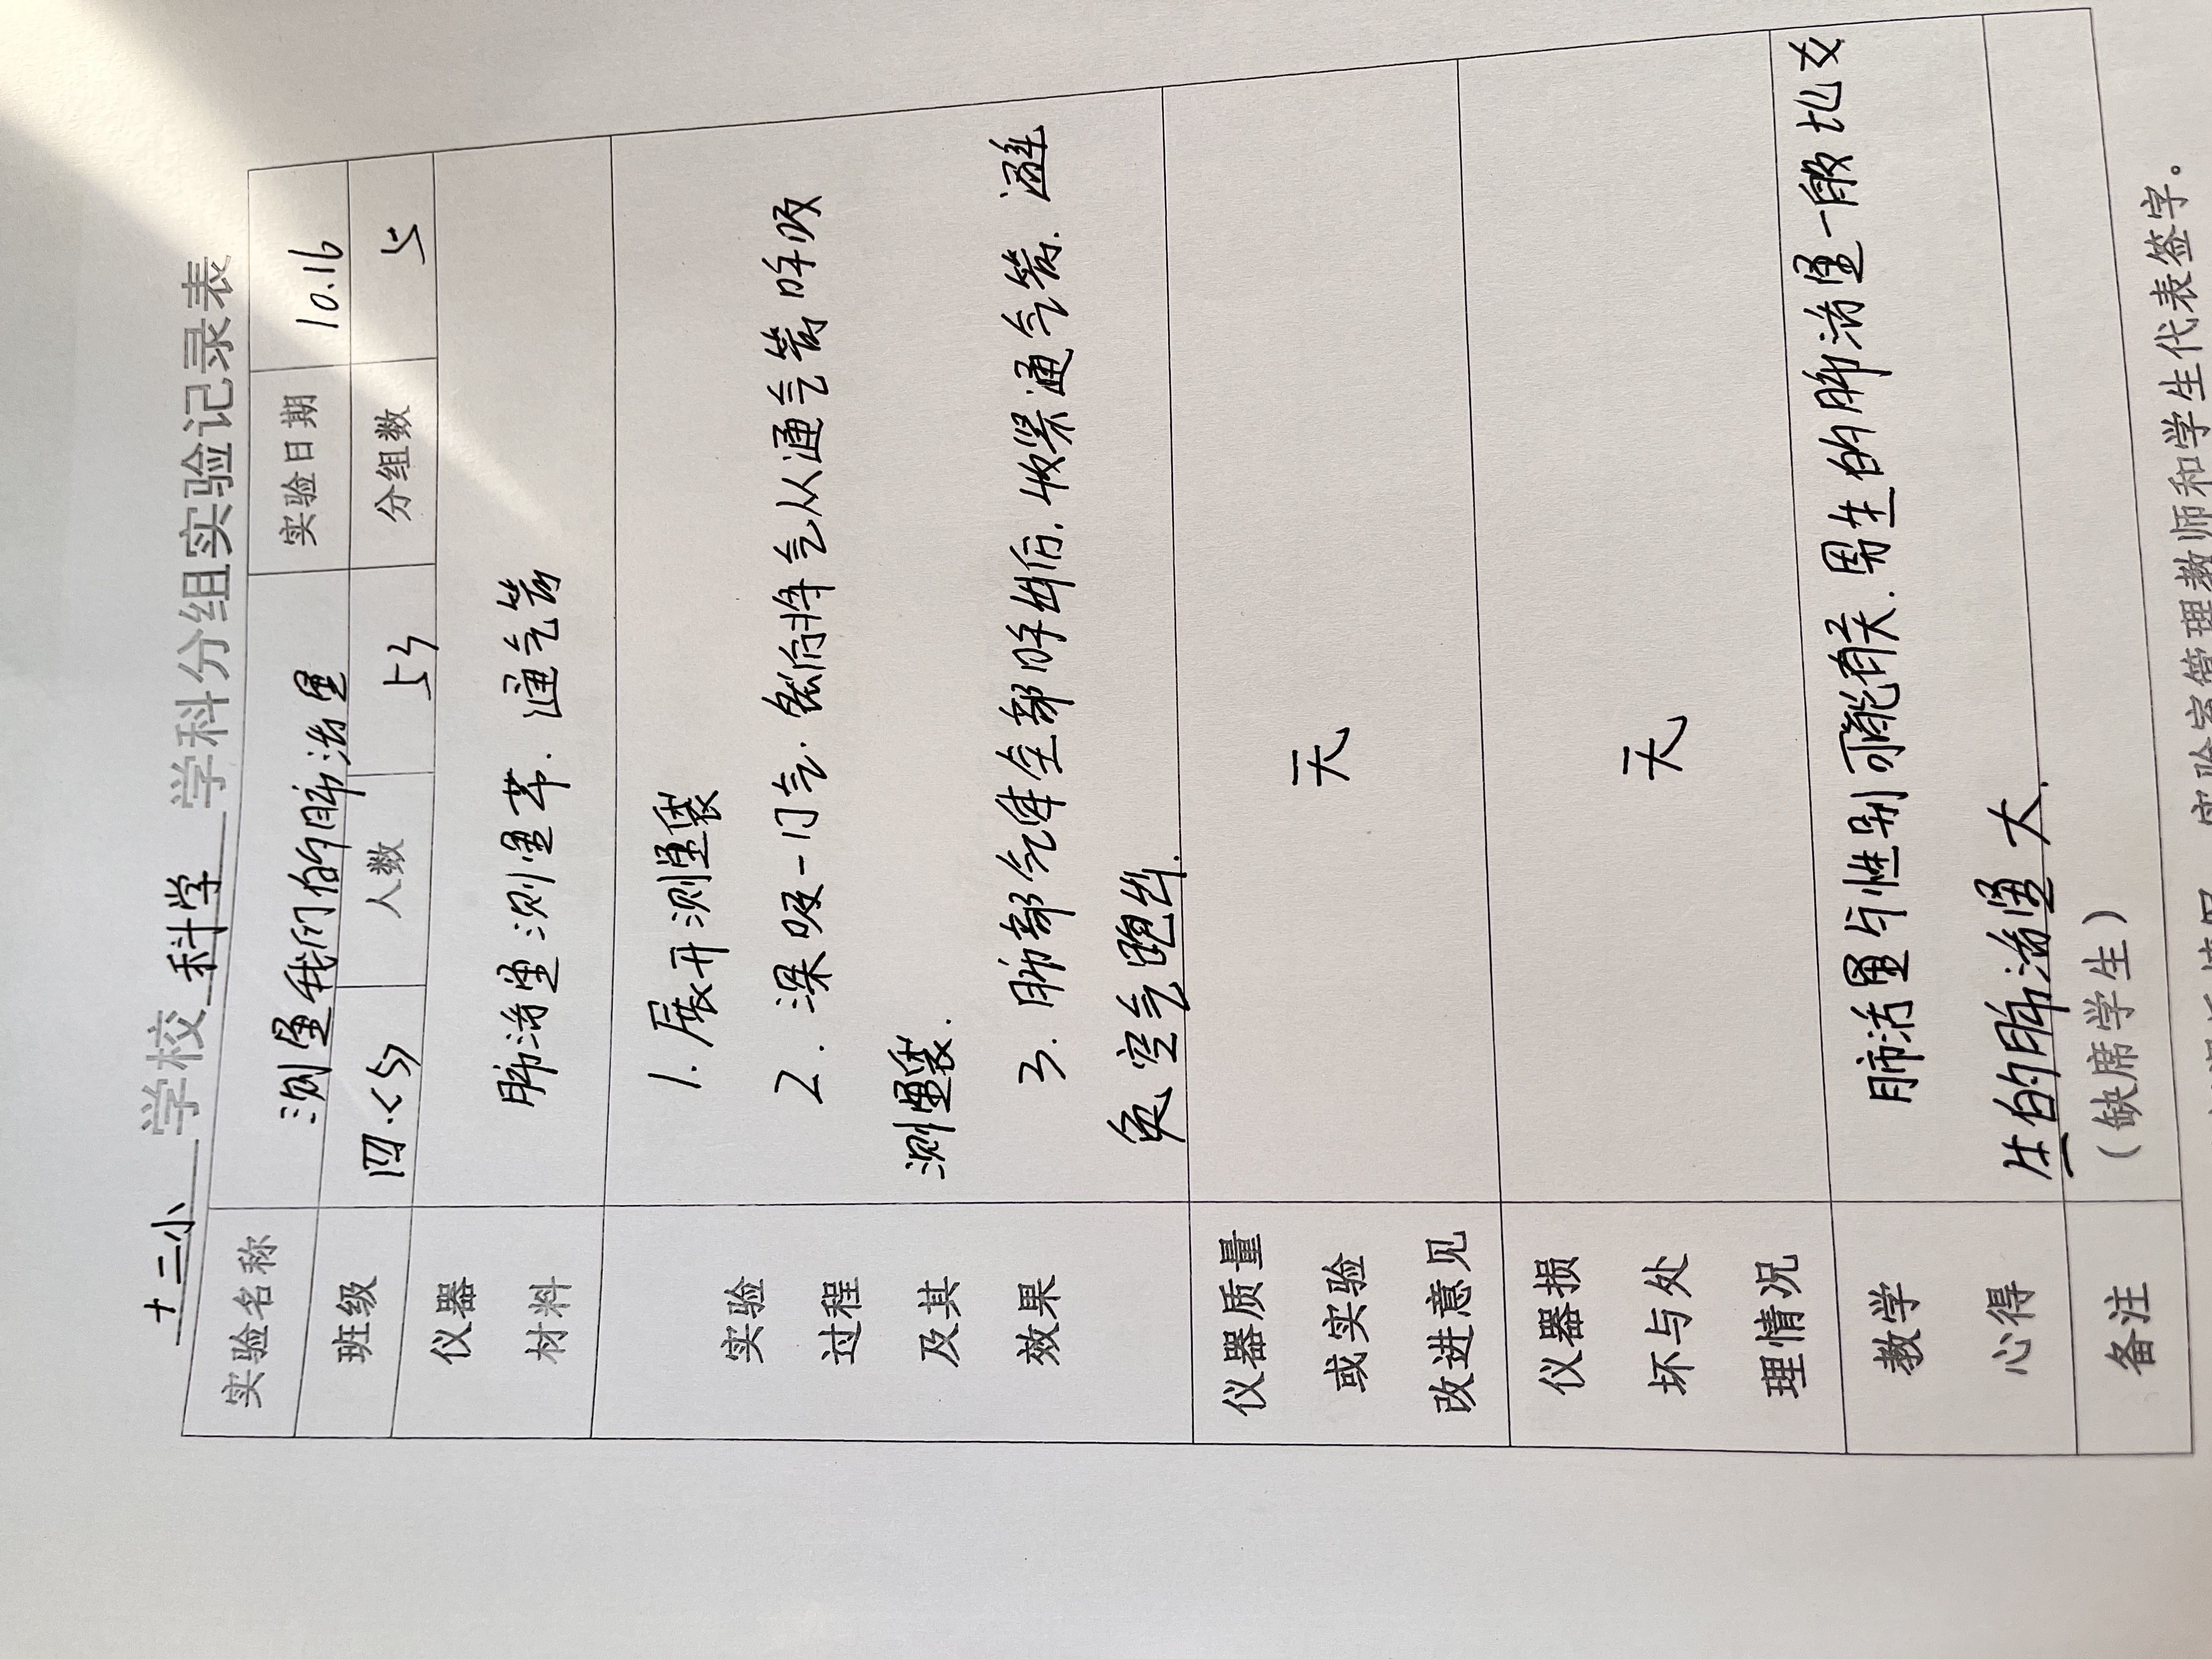 十二小 学校 科学 学科分组实验记录表
实验名称 测量我们的肺活量 实验日期 10.16
班级 四.<5> 人数 53 分组数 5
仪器材料 肺活量测量革. 通气管
实验过程及其效果
1. 展开测量袋
2. 深吸一口气. 然后将气从通气管呼吸
测量袋.
3. 肺部气体全部呼出后. 收紧通气管. 避
免空气跑出.
仪器质量或实验改进意见 无
仪器损坏与处理情况 无
教学心得
肺活量与性别可能有关. 男生的肺活量一般比女
生的肺活量大.
备注 (缺席学生)
实验室管理教师和学生代表签字。